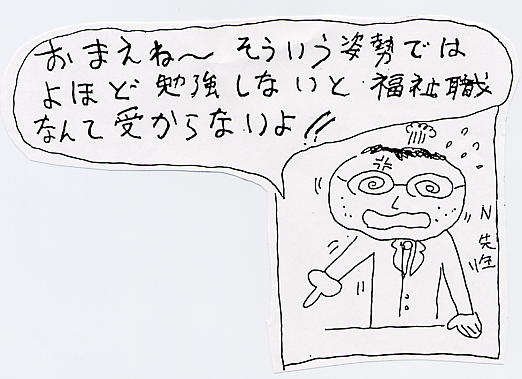 おまえね〜 そういう姿勢では
よほど勉強しないと福祉職
なんて受からないよ!!
N先生